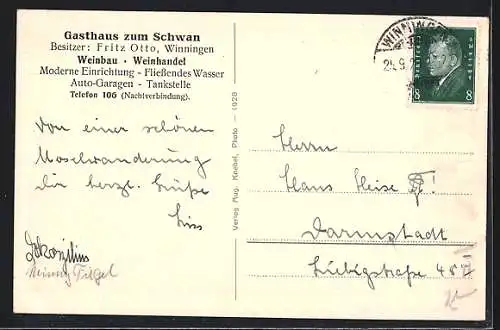 Gasthaus zum Schwan
Besitzer: Fritz Otto, Winningen
Weinbau · Weinhandel
Moderne Einrichtung - Fließendes Wasser
Auto-Garagen - Tankstelle
Telefon 106 (Nachtverbindung).
Von einer schönen
Moselwanderung
Dir herzl. Grüße
Heinz Fiegel
Verlag Aug. Kneibel, Photo — 1929
WINNINGEN
8 8
Herrn
Hans Heise
Darmstadt
Liebigstraße 48